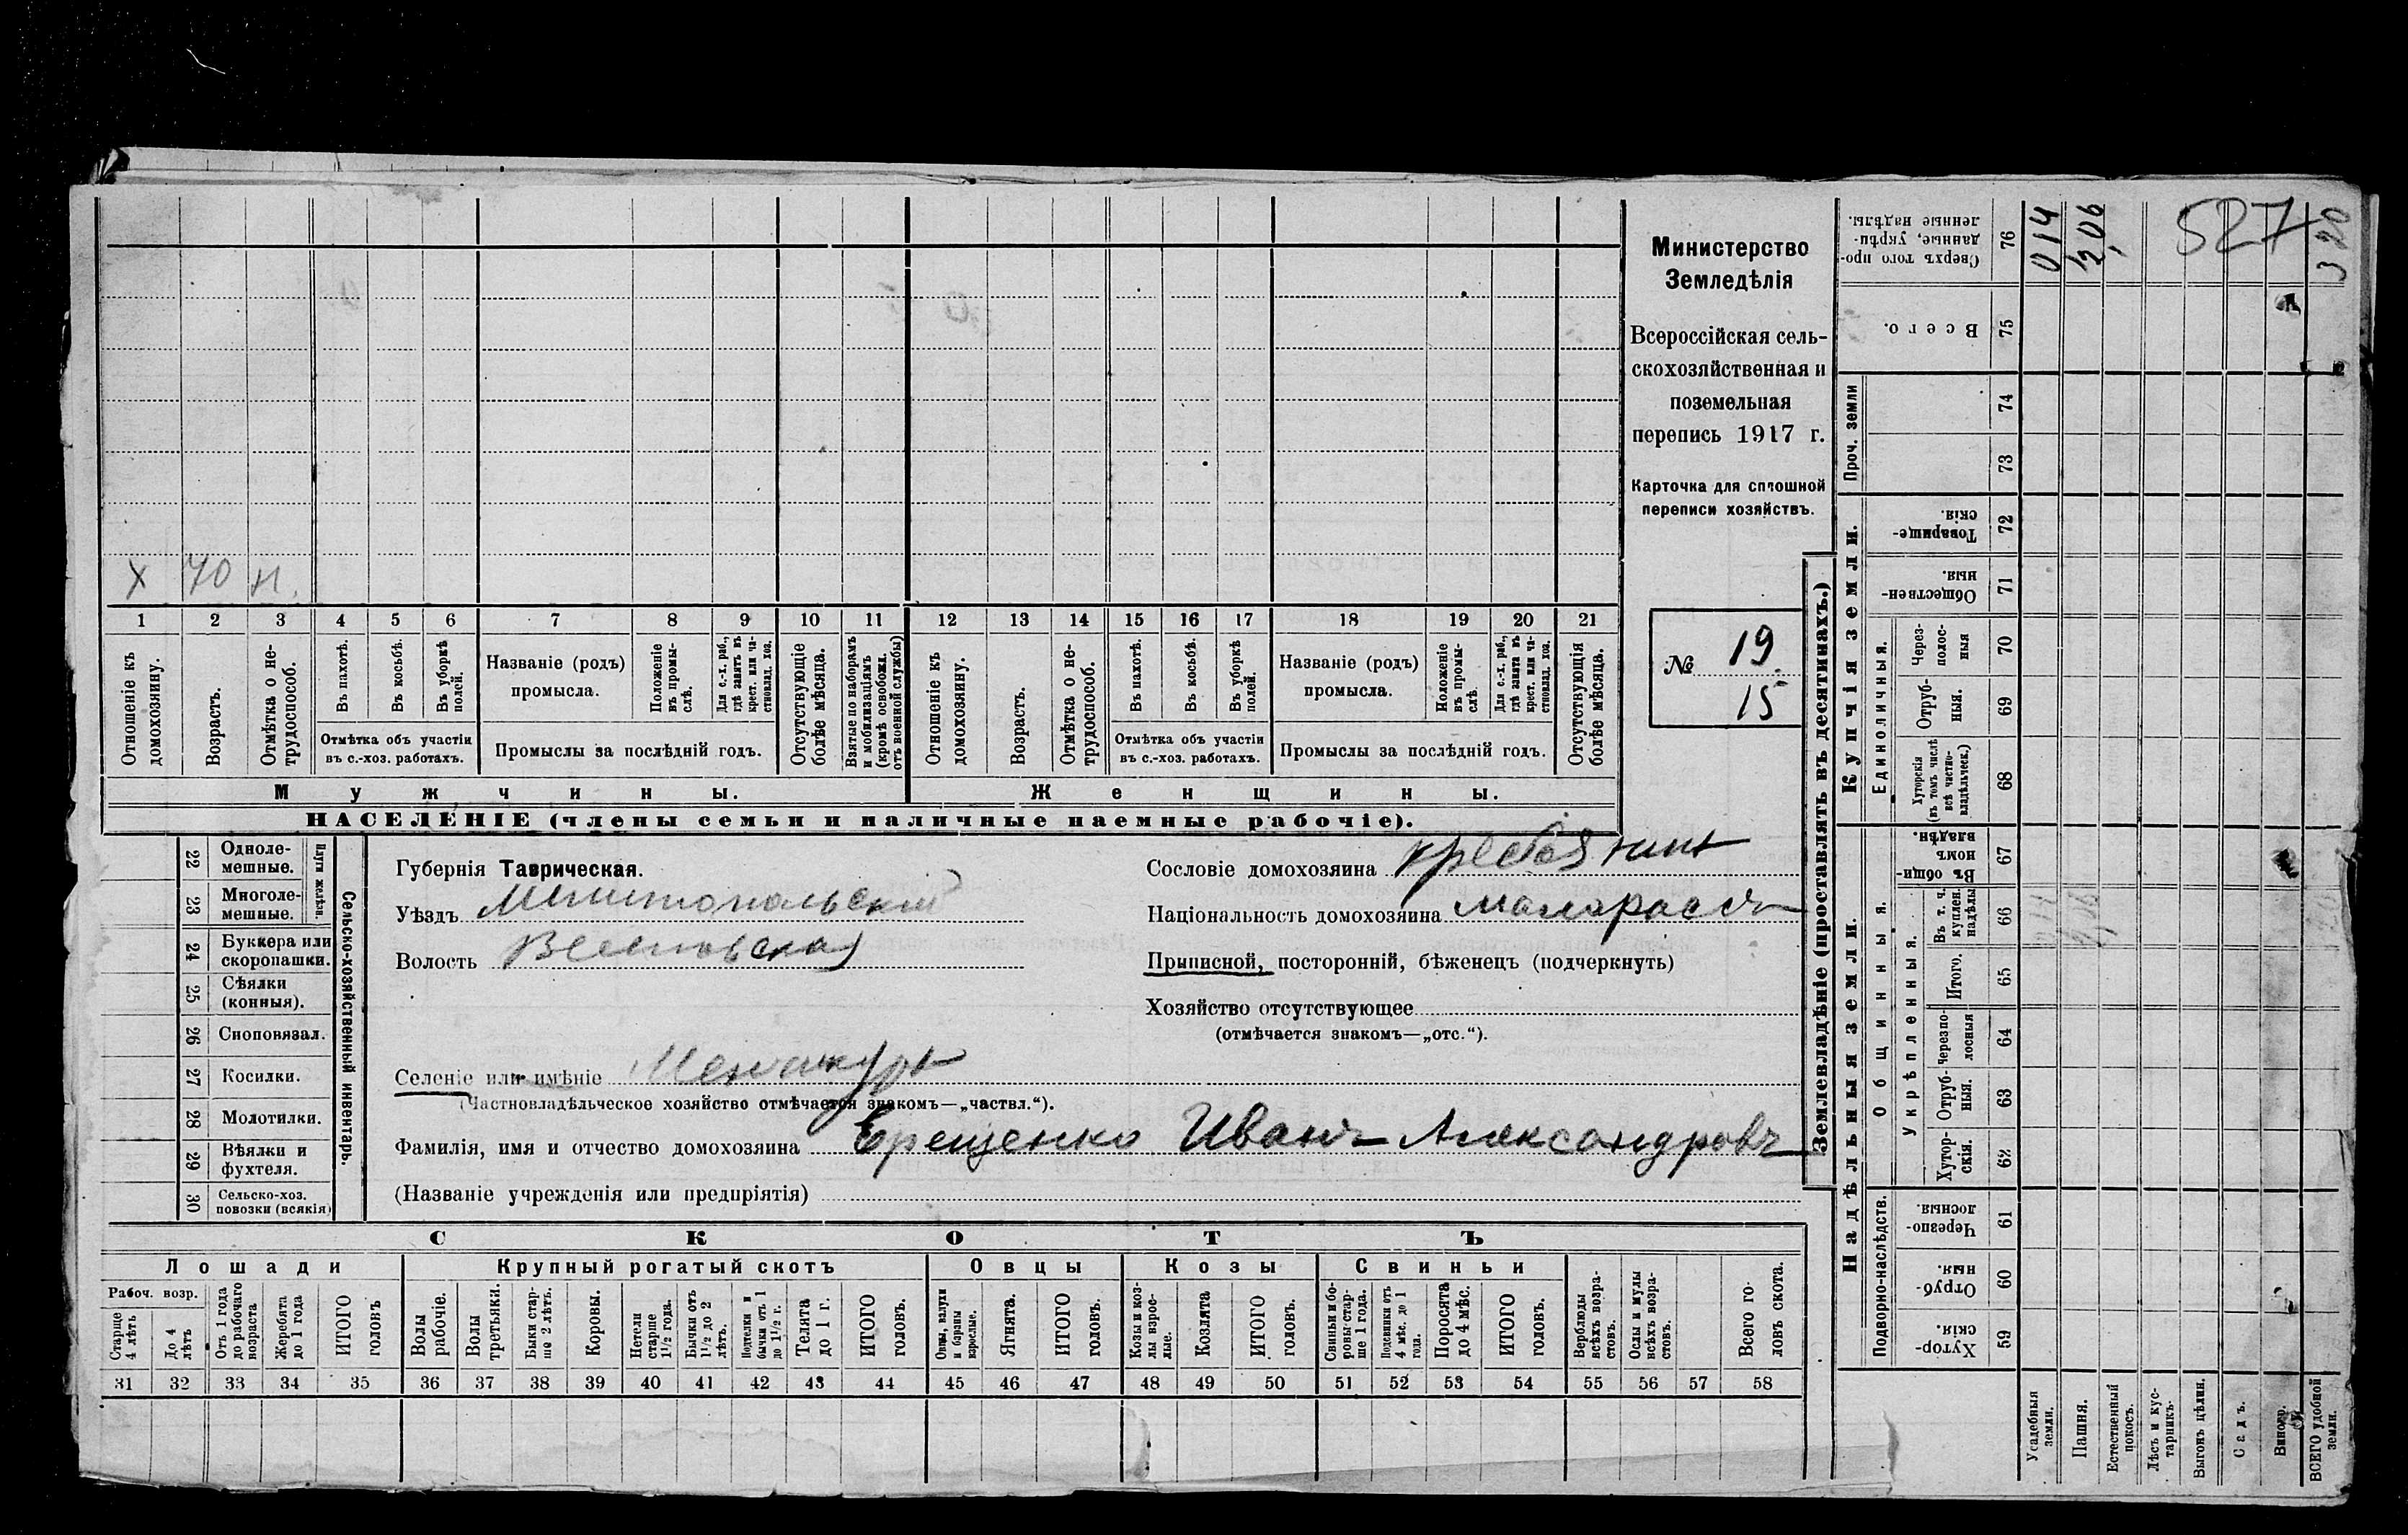 х 70 н.
1 2 3 4 5 6 7 8 9 10 11 12 13 14 15 16 17 18 19 20 21
Отношеніе къ домохозяину.
Возрастъ.
Отмѣтка о не-
трудоспособ.
Въ пахотѣ.
Въ косьбѣ.
Въ уборкѣ полей.
Отмѣтка объ участіи
въ с.-хоз. работахъ.
Названіе (родъ)
промысла.
Положеніе въ промы-
слѣ.
Для с.-х. раб., гдѣ занятъ въ крест. или ча-
стновлад. хоз.
Промыслы за послѣдній годъ.
Отсутствующіе болѣе мѣсяца.
Взятые по наборамъ и мобилизаціямъ (кромѣ освобожд. отъ военной службы)
Отношеніе къ домохозяину.
Возрастъ.
Отмѣтка о не-
трудоспособ.
Въ пахотѣ.
Въ косьбѣ.
Въ уборкѣ полей.
Отмѣтка объ участіи
въ с.-хоз. работахъ.
Названіе (родъ)
промысла.
Положеніе въ промы-
слѣ.
Для с.-х. раб., гдѣ занята въ крест. или ча-
стновлад. хоз.
Промыслы за послѣдній годъ.
Отсутствующія болѣе мѣсяца.
Мужчины. Женщины.
НАСЕЛЕНІЕ (члены семьи и наличные наемные рабочіе).
Министерство
Земледѣлія
Всероссійская сель-
скохозяйственная и
поземельная
перепись 1917 г.
Карточка для сплошной
переписи хозяйствъ.
№ 19
15
22 Одноле-
мешные.
23 Многоле-
мешные.
Плуги желѣзн.
24 Буккера или
скоропашки.
25 Сѣялки
(конныя).
26 Сноповязал.
27 Косилки.
28 Молотилки.
29 Вѣялки и
фухтеля.
30 Сельско-хоз.
повозки (всякія)
Сельско-хозяйственный инвентарь.
Губернія Таврическая.
Уѣздъ Мелитопольскій
Волость Веселовская
Сословіе домохозяина крестьянинъ
Національность домохозяина малороссъ
Приписной, посторонній, бѣженецъ (подчеркнуть)
Хозяйство отсутствующее
(отмѣчается знакомъ—„отс.“).
Селеніе или имѣніе
(Частновладѣльческое хозяйство отмѣчается знакомъ—„частвл.“).
Фамилія, имя и отчество домохозяина Ерещенко Иванъ Александровъ
(Названіе учрежденія или предпріятія)
СКОТЪ
Лошади Крупный рогатый скотъ Овцы Козы Свиньи
Рабоч. возр.
Старше 4 лѣтъ
До 4 лѣтъ
Отъ 1 года до рабочаго возраста
Жеребята до 1 года
ИТОГО головъ
Волы рабочіе.
Волы третьяки.
Быки стар-
ше 2 лѣтъ.
Коровы.
Нетели старше 1½ года.
Бычки отъ 1½ до 2 лѣтъ.
Подтелки и бычки отъ 1 до 1½ г.
Телята до 1 г.
ИТОГО головъ.
Овцы, валухи и бараны взрослые.
Ягнята.
ИТОГО головъ.
Козы и коз-
лы взрос-
лые.
Козлята
ИТОГО головъ.
Свиньи и бо-
ровы стар-
ше 1 года.
Подсвинки отъ 4 мѣс. до 1 года.
Поросята до 4 мѣс.
ИТОГО головъ.
Верблюды всѣхъ возра-
стовъ.
Ослы и мулы всѣхъ возра-
стовъ.
Всего го-
ловъ скота.
31 32 33 34 35 36 37 38 39 40 41 42 43 44 45 46 47 48 49 50 51 52 53 54 55 56 57 58
Землевладѣніе (проставлять въ десятинахъ.)
Надѣльныя земли. Купчія земли. Проч. земли
Подворно-наслѣдств.
Общинныя.
Укрѣпленныя.
Единоличныя.
Сверхъ того про-
данные, укрѣп-
ленные надѣлы. 76
Всего. 75
74
73
Товарище-
скія. 72
Обществен-
ныя. 71
Через-
полос-
ныя 70
Отруб-
ныя. 69
Хуторскія (въ томъ числѣ всѣ частно-
владѣльческ.) 68
Въ общи-
номъ владѣн. 67
Въ т. ч. куплен. надѣлы 66
Итого. 65
Черезпо-
лосныя 64
Отруб-
ныя. 63
Хутор-
скія. 62
Черезпо-
лосныя. 61
Отруб-
ныя. 60
Хутор-
скія. 59
Усадебныя земли.
Пашня.
Естественный покосъ.
Лѣсъ и кус-
тарникъ.
Выгонъ цѣлин.
Садъ.
Виногр.
ВСЕГО удобной земли.
014
2,06
527
320